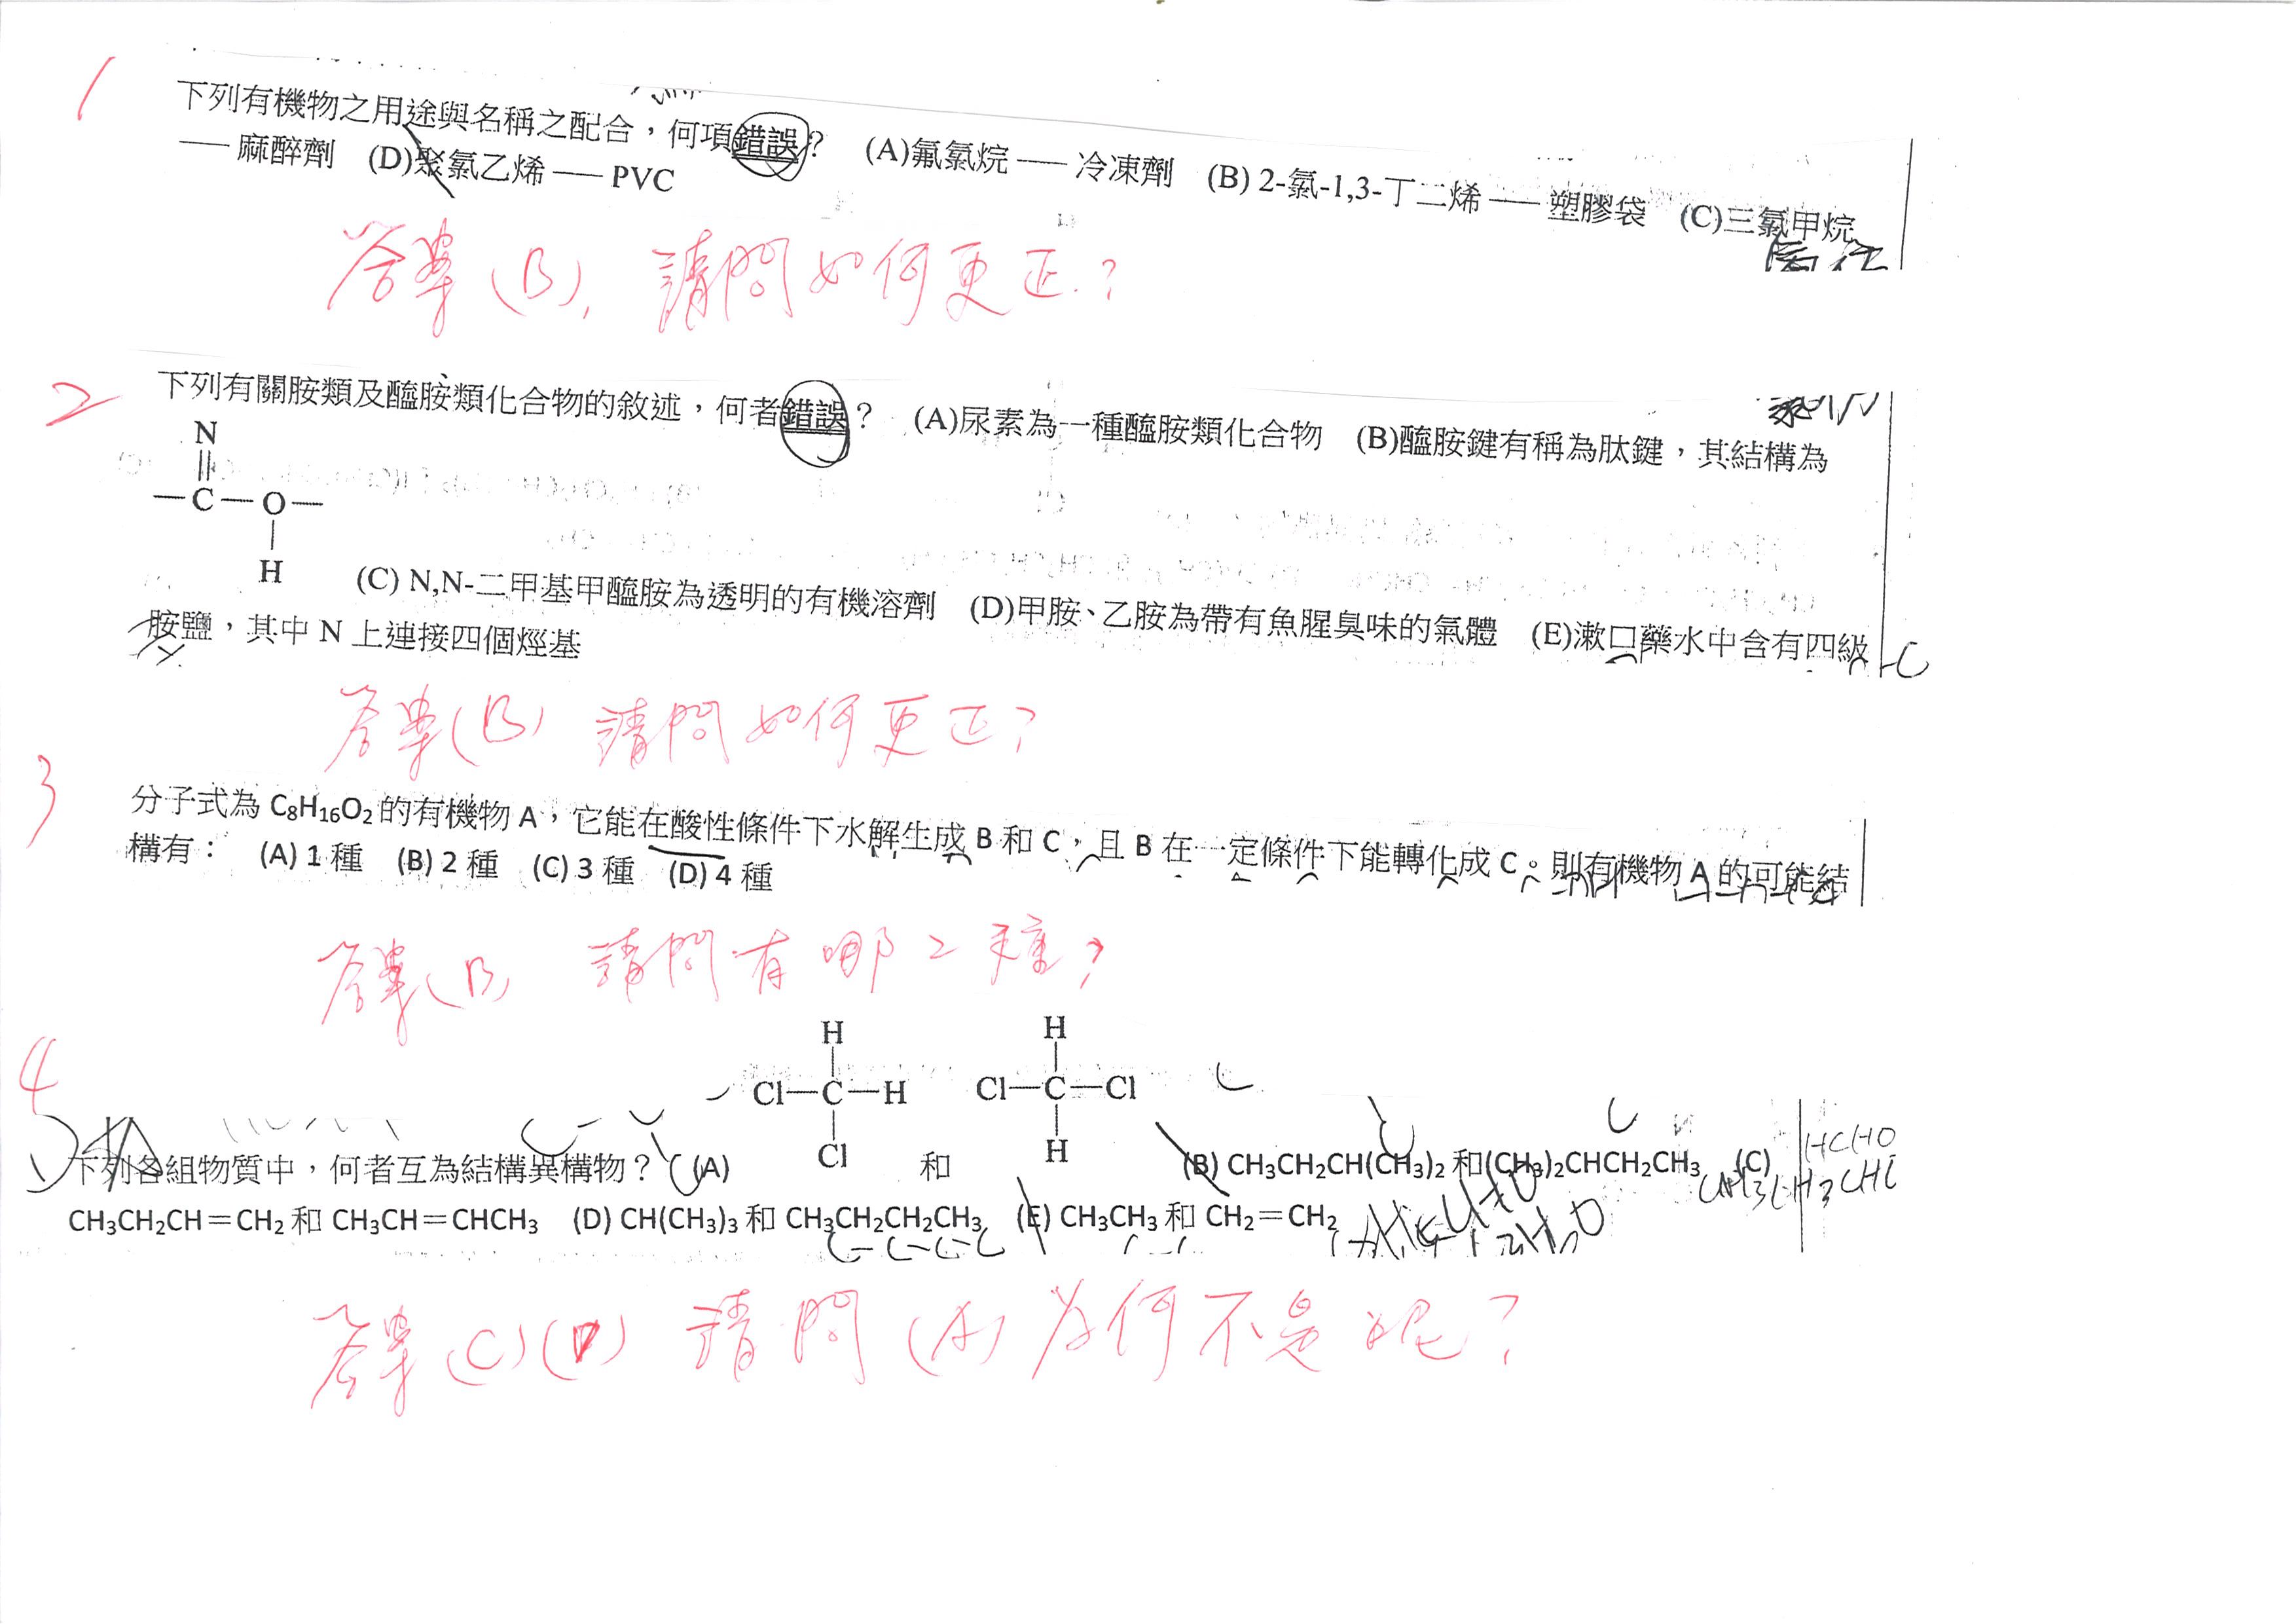 1
下列有機物之用途與名稱之配合，何項錯誤？ (A)氟氯烷 — 冷凍劑 (B) 2-氯-1,3-丁二烯 — 塑膠袋 (C)三氯甲烷
— 麻醉劑 (D)聚氯乙烯 — PVC
答案(B), 請問如何更正?
2
下列有關胺類及醯胺類化合物的敘述，何者錯誤？ (A)尿素為一種醯胺類化合物 (B)醯胺鍵有稱為肽鍵，其結構為
N
—C—O—
H
(C) N,N-二甲基甲醯胺為透明的有機溶劑 (D)甲胺、乙胺為帶有魚腥臭味的氣體 (E)漱口藥水中含有四級
胺鹽，其中 N 上連接四個烴基
答案(B) 請問如何更正?
3
分子式為 C₈H₁₆O₂ 的有機物 A，它能在酸性條件下水解生成 B 和 C，且 B 在一定條件下能轉化成 C。則有機物 A 的可能結
構有： (A) 1 種 (B) 2 種 (C) 3 種 (D) 4 種
答案(B) 請問有哪2種?
4
H H
Cl—C—H Cl—C—Cl
Cl H
下列各組物質中，何者互為結構異構物？ (A) 和 (B) CH₃CH₂CH(CH₃)₂ 和(CH₃)₂CHCH₂CH₃ (C)
HCHO
CH₃CH₂CH＝CH₂ 和 CH₃CH＝CHCH₃ (D) CH(CH₃)₃ 和 CH₃CH₂CH₂CH₃ (E) CH₃CH₃ 和 CH₂＝CH₂
C-C-C-C
答案(C)(D) 請問(A)為何不是呢?